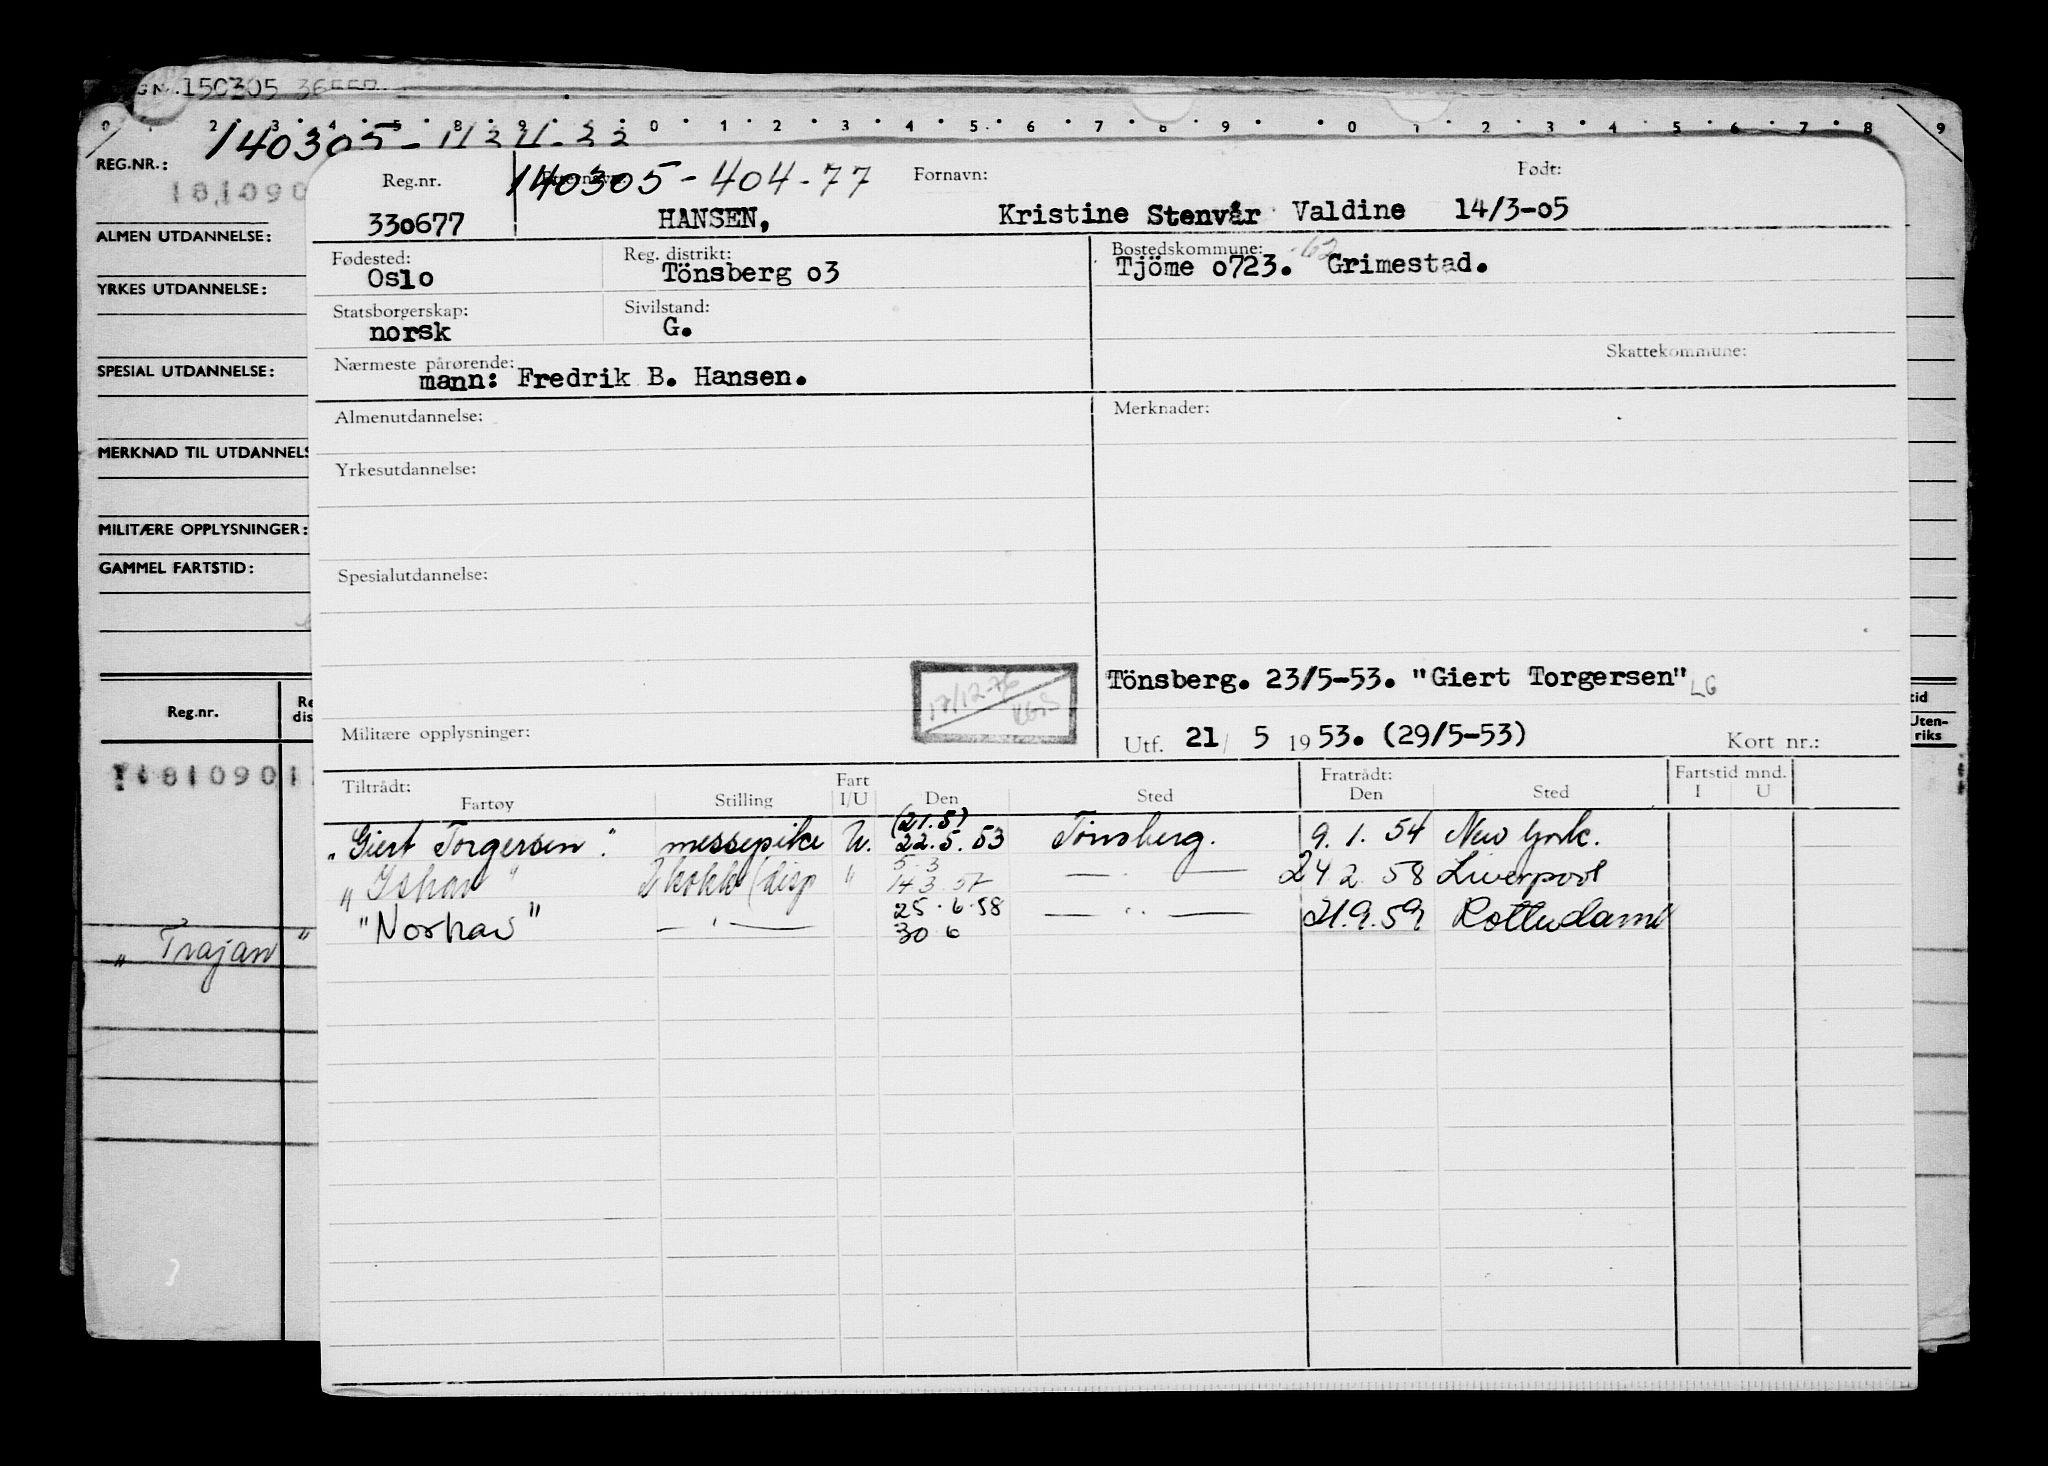 150305
0 1 2 3 4 5 8 9 0 1 2 3 4 5 6 7 8 9 0 1 2 3 4 5 6 7 8 9
REG.NR.: 140305-
181090
ALMEN UTDANNELSE:
YRKES UTDANNELSE:
SPESIAL UTDANNELSE:
MERKNAD TIL UTDANNELS
MILITÆRE OPPLYSNINGER:
GAMMEL FARTSTID:
Reg.nr.
Re
dis
tid
Uten-
riks
181090
„ Trajan "
Reg.nr. 140305-404-77 Fornavn: Født:
330677 HANSEN, Kristine Stenvår Valdine 14/3-05
Fødested: Reg. distrikt: Bostedskommune: -62
Oslo Tönsberg 03 Tjöme 0723. Grimestad.
Statsborgerskap: Sivilstand:
norsk G.
Skattekommune:
Nærmeste pårørende:
mann: Fredrik B. Hansen.
Almenutdannelse: Merknader:
Yrkesutdannelse:
Spesialutdannelse:
17/12-76
Tönsberg. 23/5-53. "Giert Torgersen" LG
Militære opplysninger:
Utf. 21/ 5 1953. (29/5-53) Kort nr.:
Tiltrådt: Fart Fratrådt: Fartstid mnd.
Fartøy Stilling I/U Den Sted Den Sted I U
(21.5)
„Giert Torgersen". messepike U. 22.5.53 Tönsberg. 9.1.54 New York.
5.3
„Ishav" 14 3.57 24 2 58 Liverpool
"Norhav" 25.6.58 21.9.59 Rotterdam
30 6